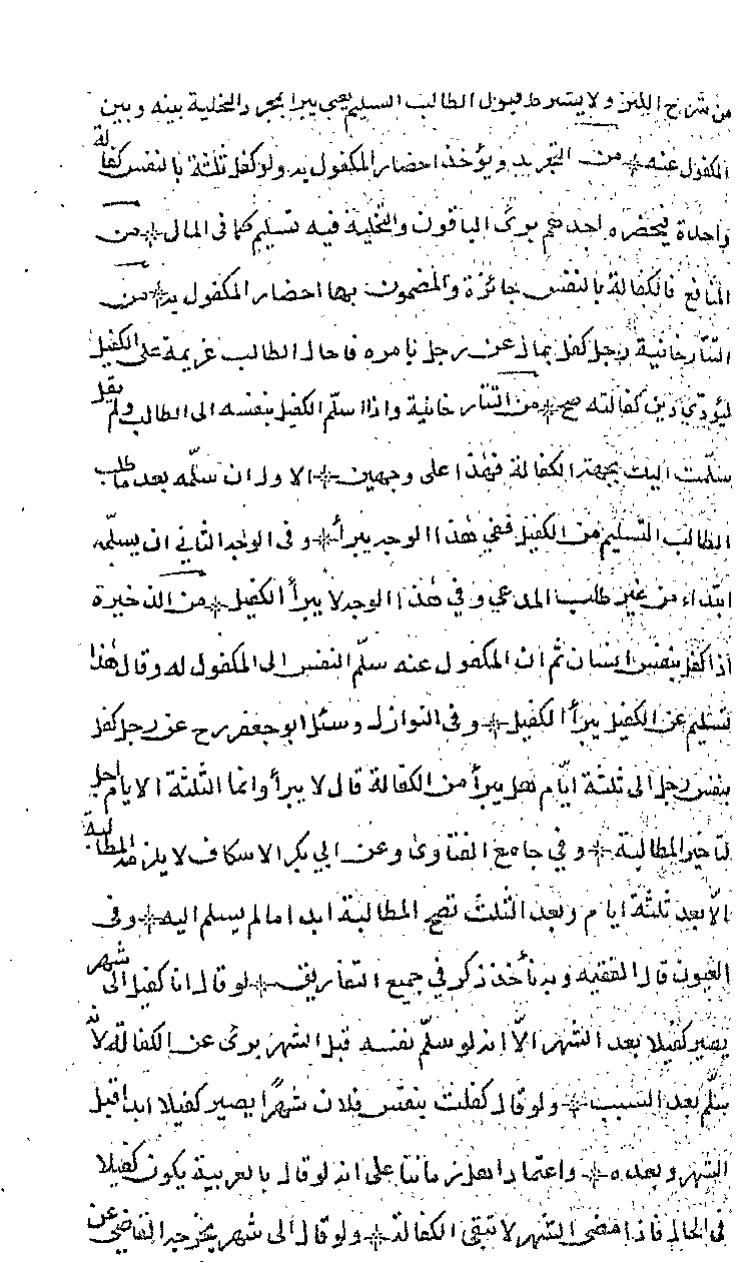 من شرح الكنز ولا يشترط قبول الطالب التسليم يعني يبرأ بمجرد التخلية بينه وبين
المكفول عنه ❊ من التجريد ويؤخذ احضار المكفول به ولو كفل ثلثة بالنفس كفالة
واحدة فيحضره احدهم برئ الباقون والتخلية فيه تسليم كما في المال ❊ من
المنافع فالكفالة بالنفس جائزة والمضمون بها احضار المكفول به ❊ من
التتارخانية رجل كفل بمال عن رجل بامره فاحال الطالب غريمه على الكفيل
ليؤدي دين كفالته صح ❊ من التتارخانية واذا سلّم الكفيل بنفسه الى الطالب ولم يقل
سلّمت اليك بجهة الكفالة فهذا على وجهين ❊ الاول ان سلّمه بعد ما طلب
الطالب التسليم من الكفيل ففي هذا الوجه يبرأ ❊ وفي الوجه الثاني ان يسلّمه
ابتداء من غير طلب المدعي وفي هذا الوجه لا يبرأ الكفيل ❊ من الذخيرة
اذا كفل بنفس انسان ثم ان المكفول عنه سلّم النفس الى المكفول له وقال هذا
تسليم عن الكفيل يبرأ الكفيل ❊ وفي النوازل وسئل ابو جعفر رح عن رجل كفل
بنفس رجل الى ثلثة ايّام هل يبرأ من الكفالة قال لا يبرأ وانما الثلثة الايام اجل
لتأخير المطالبة ❊ وفي جامع الفتاوى وعن ابي بكر الاسكاف لا يلزمه المطالبة
الّا بعد ثلثة ايام وبعد الثلث تصح المطالبة ابدا ما لم يسلم اليه ❊ وفي
العيون قال الفقيه وبه نأخذ ذكر في جميع التفاريق ❊ لو قال انا كفيل الى شهر
يصير كفيلا بعد الشهر الّا انه لو سلّم نفسه قبل الشهر برئ عن الكفالة لانّه
سلّم بعد السبب ❊ ولو قال كفلت بنفس فلان شهرًا يصير كفيلا ابدا قبل
الشهر وبعده ❊ واعتماد اهل زماننا على انه لو قال بالعربية يكون كفيلا
في الحال فاذا مضى الشهر لا تبقى الكفالة ❊ ولو قال الى شهر يخرجه القاضي عن